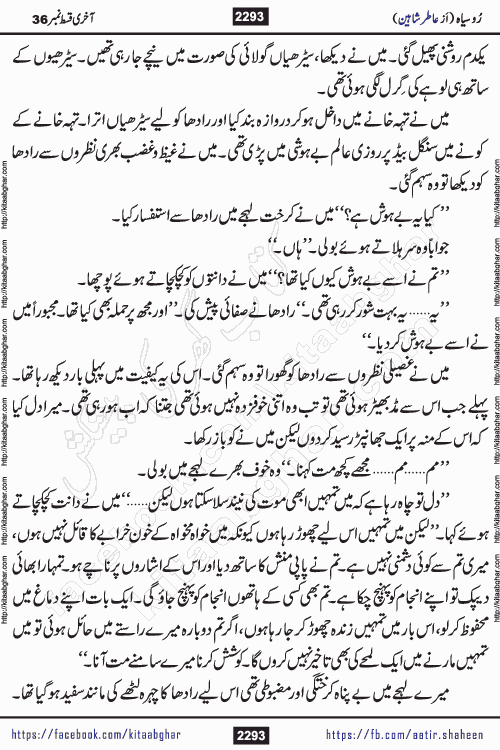 رُوسیاہ (اَز عاطر شاہین)
2293
آخری قسط نمبر 36
یکدم روشنی پھیل گئی۔ میں نے دیکھا، سیڑھیاں گولائی کی صورت میں نیچے جا رہی تھیں۔ سیڑھیوں کے
ساتھ ہی لوہے کی گرل لگی ہوئی تھی۔
میں نے تہہ خانے میں داخل ہو کر دروازہ بند کیا اور رادھا کو لیے سیڑھیاں اترا۔ تہہ خانے کے
کونے میں سنگل بیڈ پر روزی عالم بے ہوشی میں پڑی تھی۔ میں نے غیظ و غضب بھری نظروں سے رادھا
کو دیکھا تو وہ سہم گئی۔
”کیا یہ بے ہوش ہے؟“ میں نے کرخت لہجے میں رادھا سے استفسار کیا۔
جواباً وہ سر ہلاتے ہوئے بولی۔ ”ہاں۔“
”تم نے اسے بے ہوش کیوں کیا تھا؟“ میں نے دانتوں کو کچکچاتے ہوئے پوچھا۔
”یہ...... یہ بہت شور کر رہی تھی۔“ رادھا نے صفائی پیش کی۔ ”اور مجھ پر حملہ بھی کیا تھا۔ مجبوراً میں
نے اسے بے ہوش کر دیا۔“
میں نے غصیلی نظروں سے رادھا کو گھورا تو وہ سہم گئی۔ اس کی یہ کیفیت میں پہلی بار دیکھ رہا تھا۔
پہلے جب اس سے مڈبھیڑ ہوئی تھی تو تب وہ اتنی خوفزدہ نہیں ہوئی تھی جتنا کہ اب ہو رہی تھی۔ میرا دل کیا
کہ اس کے منہ پر ایک جھانپڑ رسید کر دوں لیکن میں نے کو باز رکھا۔
”مم...... مم...... مجھے کچھ مت کہنا۔“ وہ خوف بھرے لہجے میں بولی۔
”دل تو چاہ رہا ہے کہ میں تمہیں ابھی موت کی نیند سلا سکتا ہوں لیکن......“ میں نے دانت کچکچاتے
ہوئے کہا۔ ”لیکن میں تمہیں اس لیے چھوڑ رہا ہوں کیونکہ میں خواہ مخواہ کے خون خرابے کا قائل نہیں ہوں،
میری تم سے کوئی دشمنی نہیں ہے۔ تم نے پاپی منش کا ساتھ دیا اور اس کے اشاروں پر ناچے ہو۔ تمہارا بھائی
دیپک تو اپنے انجام کو پہنچ چکا ہے۔ تم بھی کسی کے ہاتھوں انجام کو پہنچ جاؤ گی۔ ایک بات اپنے دماغ میں
محفوظ کر لو، اس بار میں تمہیں زندہ چھوڑ کر جا رہا ہوں، اگر تم دوبارہ میرے راستے میں حائل ہوئی تو میں
تمہیں مارنے میں ایک لمحے کی بھی تاخیر نہیں کروں گا۔ کوشش کرنا میرے سامنے مت آنا۔“
میرے لہجے میں بے پناہ کرختگی اور مضبوطی تھی اس لیے رادھا کا چہرہ لٹھے کی مانند سفید ہو گیا تھا۔
https://facebook.com/kitaabghar
2293
https://fb.com/aatir.shaheen
http://kitaabghar.com
http://kitaabghar.com
http://kitaabghar.com
http://kitaabghar.com
http://kitaabghar.com
http://kitaabghar.com
http://kitaabghar.com
http://kitaabghar.com
http://kitaabghar.com
http://kitaabghar.com
http://kitaabghar.com
http://kitaabghar.com